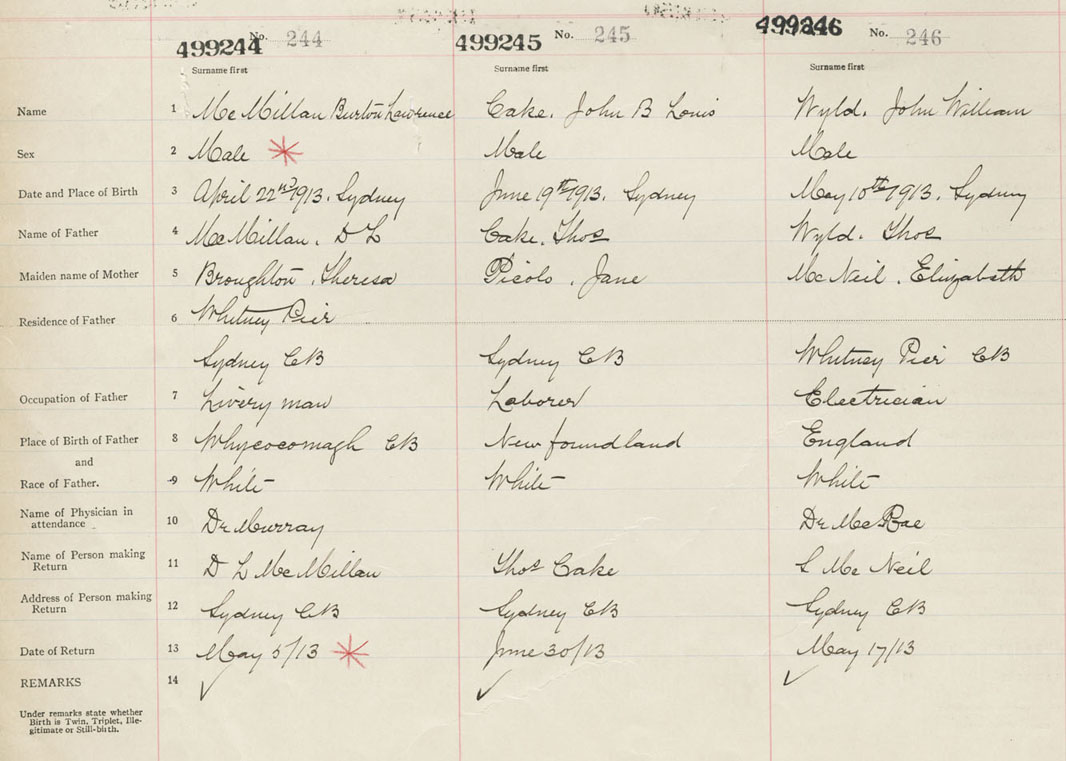 499244 No. 244 499245 No. 245 499246 No. 246
Surname first Surname first Surname first
Name 1 McMillan Burton Lawrence Cake. John B Louis Wyld. John William
Sex 2 Male Male Male
Date and Place of Birth 3 April 22nd 1913. Sydney June 19th 1913. Sydney May 10th 1913. Sydney
Name of Father 4 McMillan. D L Cake. Thos Wyld. Thos
Maiden name of Mother 5 Broughton. Theresa Picolo, Jane McNeil. Elizabeth
Residence of Father 6 Whitney Pier
Sydney CB Sydney CB Whitney Pier CB
Occupation of Father 7 Livery man Laborer Electrician
Place of Birth of Father 8 Whycocomagh CB Newfoundland England
and
Race of Father. 9 White White White
Name of Physician in
attendance 10 Dr Murray Dr McRae
Name of Person making
Return 11 D L McMillan Thos Cake S McNeil
Address of Person making
Return 12 Sydney CB Sydney CB Sydney CB
Date of Return 13 May 5/13 June 30/13 May 17/13
REMARKS 14
Under remarks state whether
Birth is Twin, Triplet, Ille-
gitimate or Still-birth.